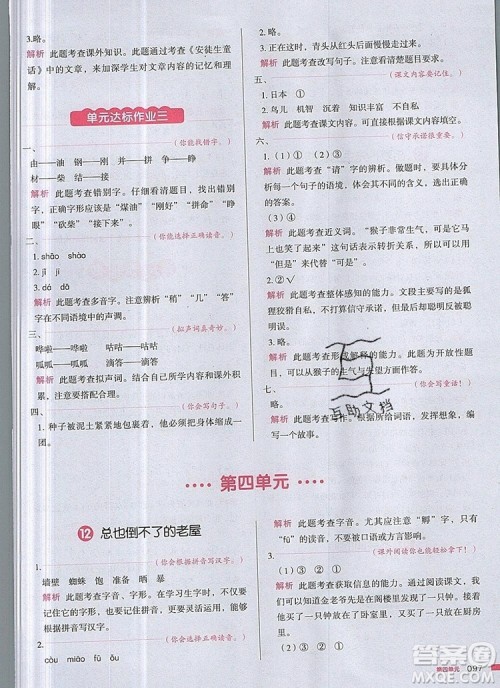 3.略。
解析 此题考查课外知识。此题考查《安徒生童
话》中的文章，考查对文章内容的记忆和理
解。
单元达标作业三
一、（你能找错字。）
由——油 钢——刚 并——拼 争——睁
材——柴 结——接
解析 此题考查错别字。仔细看清题目，辨析字
形，正确字形应该是“煤油”“刚好”“拼命”“睁
眼”“砍柴”“接下来”。
二、（你能选择正确读音。）
1. shāo shào
2. jǐ jī
3. dā dá
解析 此题考查多音字。注意辨析“稍”“几”“答”
字在不同语境中的声调。
三、（拟声词真奇妙。）
哗啦——哗啦 咕咕——咕咕
呱呱——呱呱 滴答——滴答
解析 此题考查拟声词。结合课内和课外积累，
要注意搭配合理。
四、（你会写句子。）
1. 种子被泥土紧紧地包裹着，在里面睡得很
满足。
2. 略。
3. 在这之后，青头从红头后面慢慢走过来。
解析 此题考查改写句子。注意看清楚题目要求。
五、（课文内容要记住。）
1. 日本 ①
2. 鸟儿 机智 沉着 知识丰富 不自私
解析 此题考查课文内容。根据课文内容填空。
六、（信守承诺很重要。）
1. （3）（2）（1）
解析 此题考查“请”字的辨析。要结合具体的
每一个句子的语境，体会其不同的含义，选出正确
的答案。
2. （3）①
解析 此题考查近义词。“猴子非常生气，可是它马
上也笑了起来”这句话表示转折关系，所以可以用
“但是”一词来代替“可是”。
3. ②√
解析 此题考查整体感知的能力。文段主要写的是
狐狸捉弄猴子，猴子对其进行信守承诺的教育，表现
出猴子的聪明。
4. 略。
解析 此题考查形成解释的能力。此题具有开放
性，可以从猴子的生气与生梦想方面作答。
七、（你会写童话！）
略。
解析 此题考查写作。根据所给词语，发挥想象，编
写一个故事。
第四单元
12 总也倒不了的老屋
1.（你会根据拼音写汉字。）
墙壁 蜘蛛 饱 准备 晒 暴
解析 此题考查学生对生字的书写。学习生字，不仅要
记住它的字形，更要记住它的读音。这样，才能
根据拼音写汉字。
2.（你能选择正确读音。）
còu miāo fū ǒu
解析 此题考查字的读音。尤其要注意“孵”字，只有
“旬”的读音，不要误读。
3.（课外阅读你也能把握下。）
略。
解析 此题考查获取信息的能力。通过阅读课文，
我们知道金老爷先是在阁楼里发现了一只钟，
后来又买了一只钟并放在了卧室里，又买了一只钟
放在了厨房，最后又买了一只放在了大
第四单元 097
互助文档
答案圈